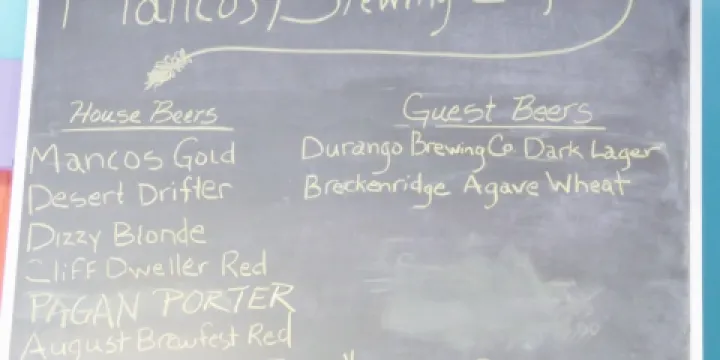 Mancos Brewing
House Beers
Mancos Gold
Desert Drifter
Dizzy Blonde
Cliff Dweller Red
PAGAN PORTER
August Brewfest Red
Guest Beers
Durango Brewing Co Dark Lager
Breckenridge Agave Wheat